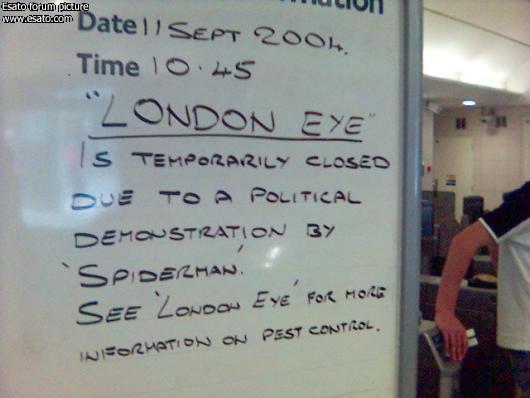 Esato forum picture
www.esato.com
Date 11 SEPT 2004.
Time 10.45
"LONDON EYE"
IS TEMPORARILY CLOSED
DUE TO A POLITICAL
DEMONSTRATION BY
'SPIDERMAN'.
SEE 'LONDON EYE' FOR MORE
INFORMATION ON PEST CONTROL.